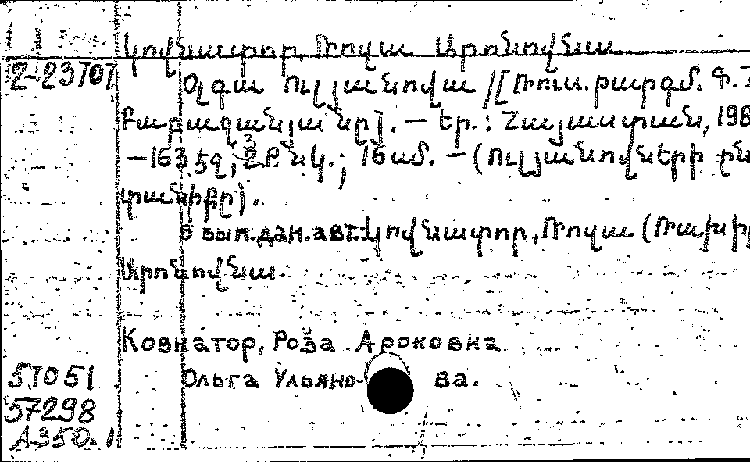 Կովնատոր, Ռոզա Արոնովնա
2-23707 Օլգա Ուլյանովա /[Ռուս. թարգմ. Ֆ.
Բաբազանյանը]. — Եր.: Հայաստան, 196
— 163 էջ, նկ.; 16սմ. — (Ուլյանովների ըն
տանիքը).
В вып.дан.авт.: Կովնատոր, Ռոզա (Ռախիլ
Արոնովնա.
Ковнатор, Роза Ароновна
57051 Ольга Ульяно- ва.
57298
A350.